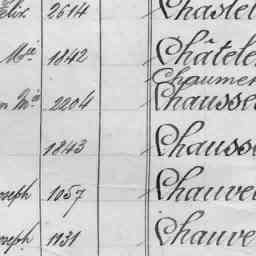 élix 2614 Chastel
Mie 1842 Châtele
Chaumer
n Mie 2204 Chausse
1843 Chausse
oseph 1057 Chauve
oseph 1131 Chauve